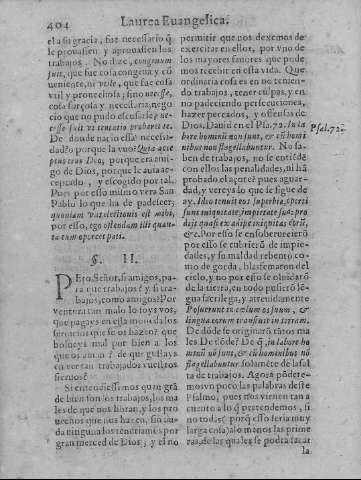 404
Laurea Euangelica.
el a su gracia, fue necessario q̃
le prouassen y aprouassen los
trabajos. No dize, congruum
fuit, que fue cosa congrua y cõ
ueniente, ni vtile, que fue cosa
vtil y prouechosa; sino necesse,
cosa forçosa y necessaria, nego
cio que no pudo escusarse, ne-
cesse fuit vt tentatio probaret te.
De donde nacio essa necessi-
dad? o porque la vuo? Quia acce
ptus eras Deo, porque era ami-
go de Dios, porque le auia ac-
ceptado, y escogido por tal.
Pues por esso mismo vere San
Pablo lo que ha de padescer;
quoniam vas electionis est mihi,
por esso, ego ostendam illi quan-
ta eum oportet pati.
§. II.
PEro, Señor, si amigos, pa-
ra que trabajos? y si tra-
bajos, como amigos? Por
ventura tan malo lo toys vos,
que pagays en essa moneda los
seruicios que se os hazen? que
bolueys mal por bien a los
que os aman? de que gustays
en ver tan trabajados vuestros
sieruos?
Si entendiessemos quan grã
de bien son los trabajos, los ma
les de que nos libran, y los pro
uechos que nos hazen, sin du-
da ninguna los tendriamos por
gran merced de Dios; y el no
permitir que nos dexemos de
exercitar en ellos, por vno de
los mayores fauores que pode
mos recebir en esta vida. Que
ordinaria cosa es en no tenien-
do trabajos, tener culpas, y en
no padeciendo persecuciones,
hazer peccados, y offensas de
Dios. Dauid en el Psa. 72. In la
bore hominum non sunt, & cũ homi
nibus non flagellabuntur. No sa-
ben de trabajos, no se entiẽde
con ellos las penalidades, ni hã
probado el açote? pues aguar-
dad, y vereys lo que se sigue de
ay. Ideo tenuit eos superbia, operti
sunt iniquitate, impietate sua: pro
dijt quasi ex adipe iniquitas eorũ,
&c. Por esso se ensoberuecierõ
por esso se cubrierõ de impie-
dades, y su maldad rebento co-
mo de gorda, blasfemaron del
cielo, y no por esso se oluidarõ
de la tierra, en todo pusierõ lẽ-
gua sacrilega, y atreuidamente
Posuerunt in cœlum os suum, &
lingua eorum transiuit in terram.
De dõde se originarõ tãtos ma
les De dõde? De q̃, in labore ho
minũ nõ sunt, & cũ hominibus nõ
flagellabuntur solamẽte de la fal
ta de trabajos. Agora põdere-
mos vn poco las palabras deste
Psalmo, pues nos vienen tan a
cuento a lo q̃ pretendemos, si
no todas (porq̃ esso seria muy
larga cosa) alo manos las prime
ras, de las quales se podra sacar
la
Psal. 72.